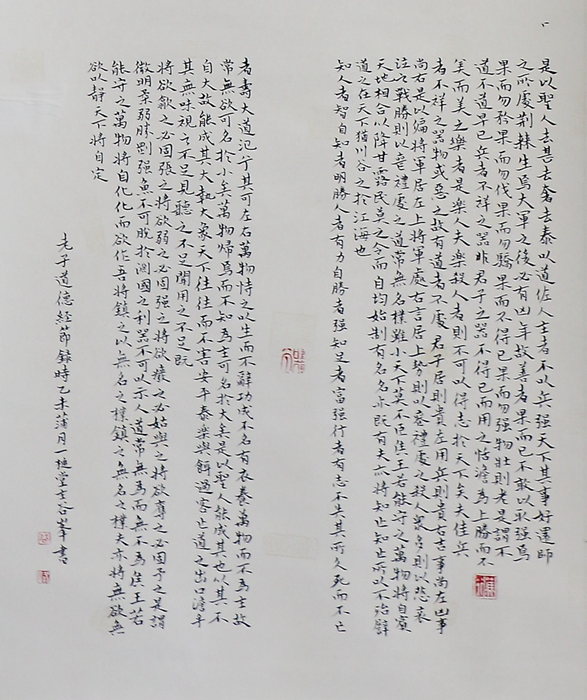 是以聖人去甚去奢去泰以道佐人主者不以兵强天下其事好還師
之所處荆棘生焉大軍之後必有凶年故善者果而已不敢以取强焉
果而勿矜果而勿伐果而勿驕果而不得已果而勿强物壯則老是謂不
道不道早已兵者不祥之器非君子之器不得已而用之恬澹為上勝而不
美而美之樂者是樂人夫樂殺人者則不可以得志於天下矣夫佳兵
者不祥之器物或惡之故有道者不處君子居則貴左用兵則貴右吉事尚左凶事
尚右是以偏將軍居左上將軍處右言居上勢則以喪禮處之殺人衆多則以悲哀
泣之戰勝則以喪禮處之道常無名樸雖小天下莫不臣侯王若能守之萬物將自賓
天地相合以降甘露民莫之令而自均始制有名名亦既有夫亦將知止知止所以不殆譬
道之在天下猶川谷之於江海也
知人者智自知者明勝人者有力自勝者强知足者富强行者有志不失其所久死而不亡
者壽大道氾兮其可左右萬物恃之以生而不辭功成不名有衣養萬物而不為主故
常無欲可名於小矣萬物歸焉而不知為主可名於大矣是以聖人能成其也以其不
自大故能成其大執大象天下往往而不害安平泰樂與餌過客止道之出口澹乎
其無味視之不足見聽之不足聞用之不足既
將欲歙之必固張之將欲弱之必固强之將欲廢之必姑與之將欲奪之必固予之是謂
微明柔弱勝剛强魚不可脫於淵國之利器不可以示人道常無為而無不為侯王若
能守之萬物將自化化而欲作吾將鎮之以無名之樸鎮之無名之樸夫亦將無欲無
欲以靜天下將自定
老子道德經節錄時乙未蒲月一堂主谷峯書